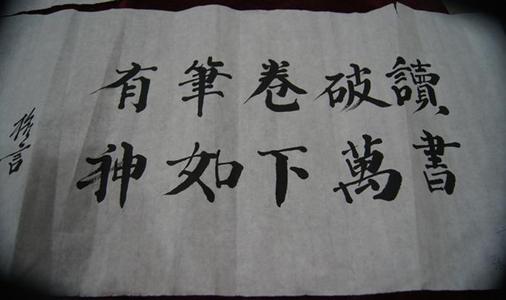 讀書
破萬
卷下
筆如
有神
言